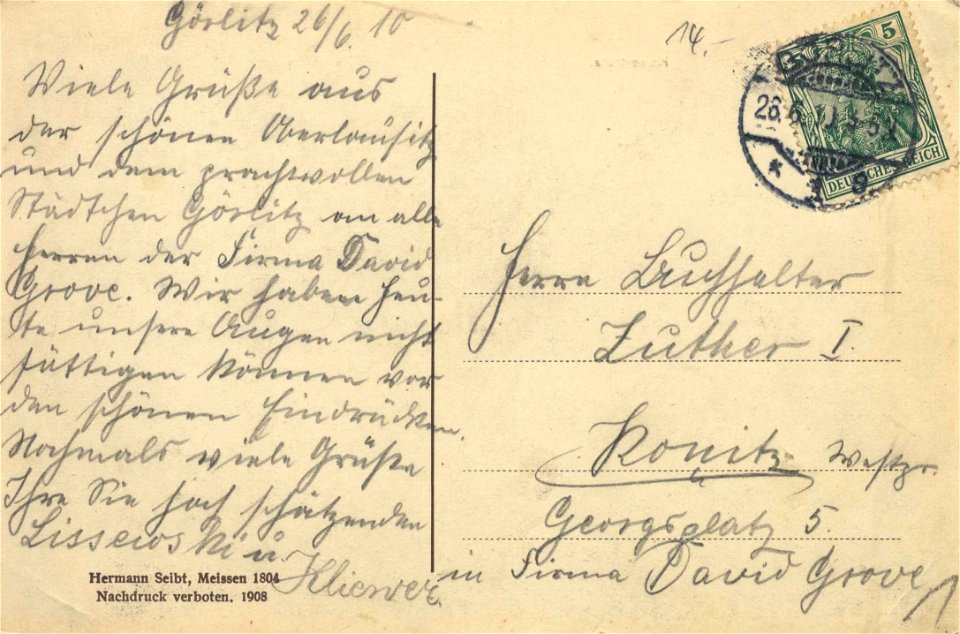 Görlitz 26/6. 10
Viele Grüße aus
der schönen Oberlausitz
und dem prachtvollen
Städtchen Görlitz an alle
Herren der Firma David
Grove. Wir haben heu-
te unsere Augen nicht
sättigen können vor
den schönen Eindrücken.
Nochmals viele Grüße
Ihre Sie hoch schätzenden
Lissewski u.
Kliewer.
Hermann Seibt, Meissen 1804
Nachdruck verboten. 1908
14.-
5
DEUTSCHES REICH
26.6.10
* 1 g
Herrn Buchhalter
Luther I.
Konitz Westpr.
Georgsplatz 5.
in Firma David Grove